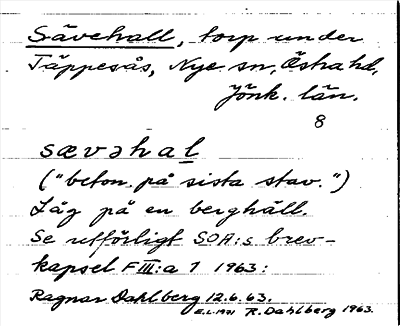 Sävehall, torp under
Täppesås, Nye sn, Östra hd,
Jönk. län.
8
sævəhal
("beton. på sista stav.")
Låg på en berghäll.
Se utförligt SOA:s brev-
kapsel F III:a 7 1963:
Ragnar Dahlberg 12.6.63.
E.L. 1971 R. Dahlberg 1963.